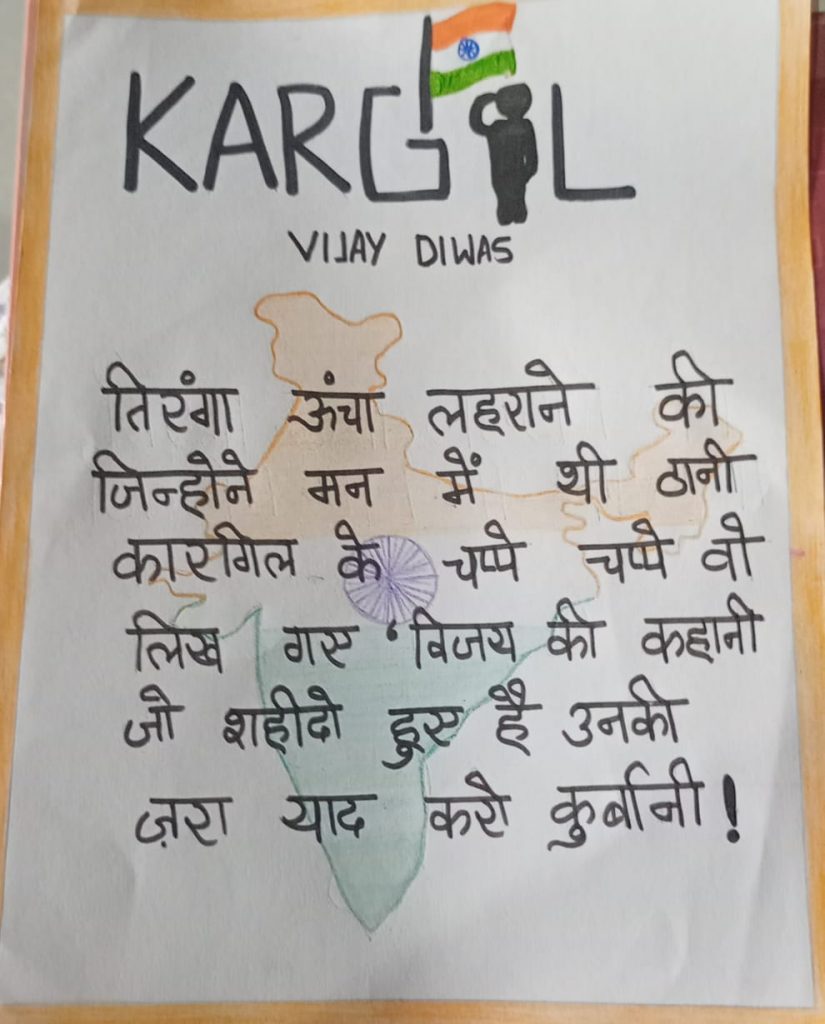 KARGIL
VIJAY DIWAS
तिरंगा ऊंचा लहराने की
जिन्होने मन में थी ठानी
कारगिल के चप्पे चप्पे वो
लिख गए 'विजय की कहानी
जो शहीदो हुए है उनकी
ज़रा याद करो कुर्बानी!